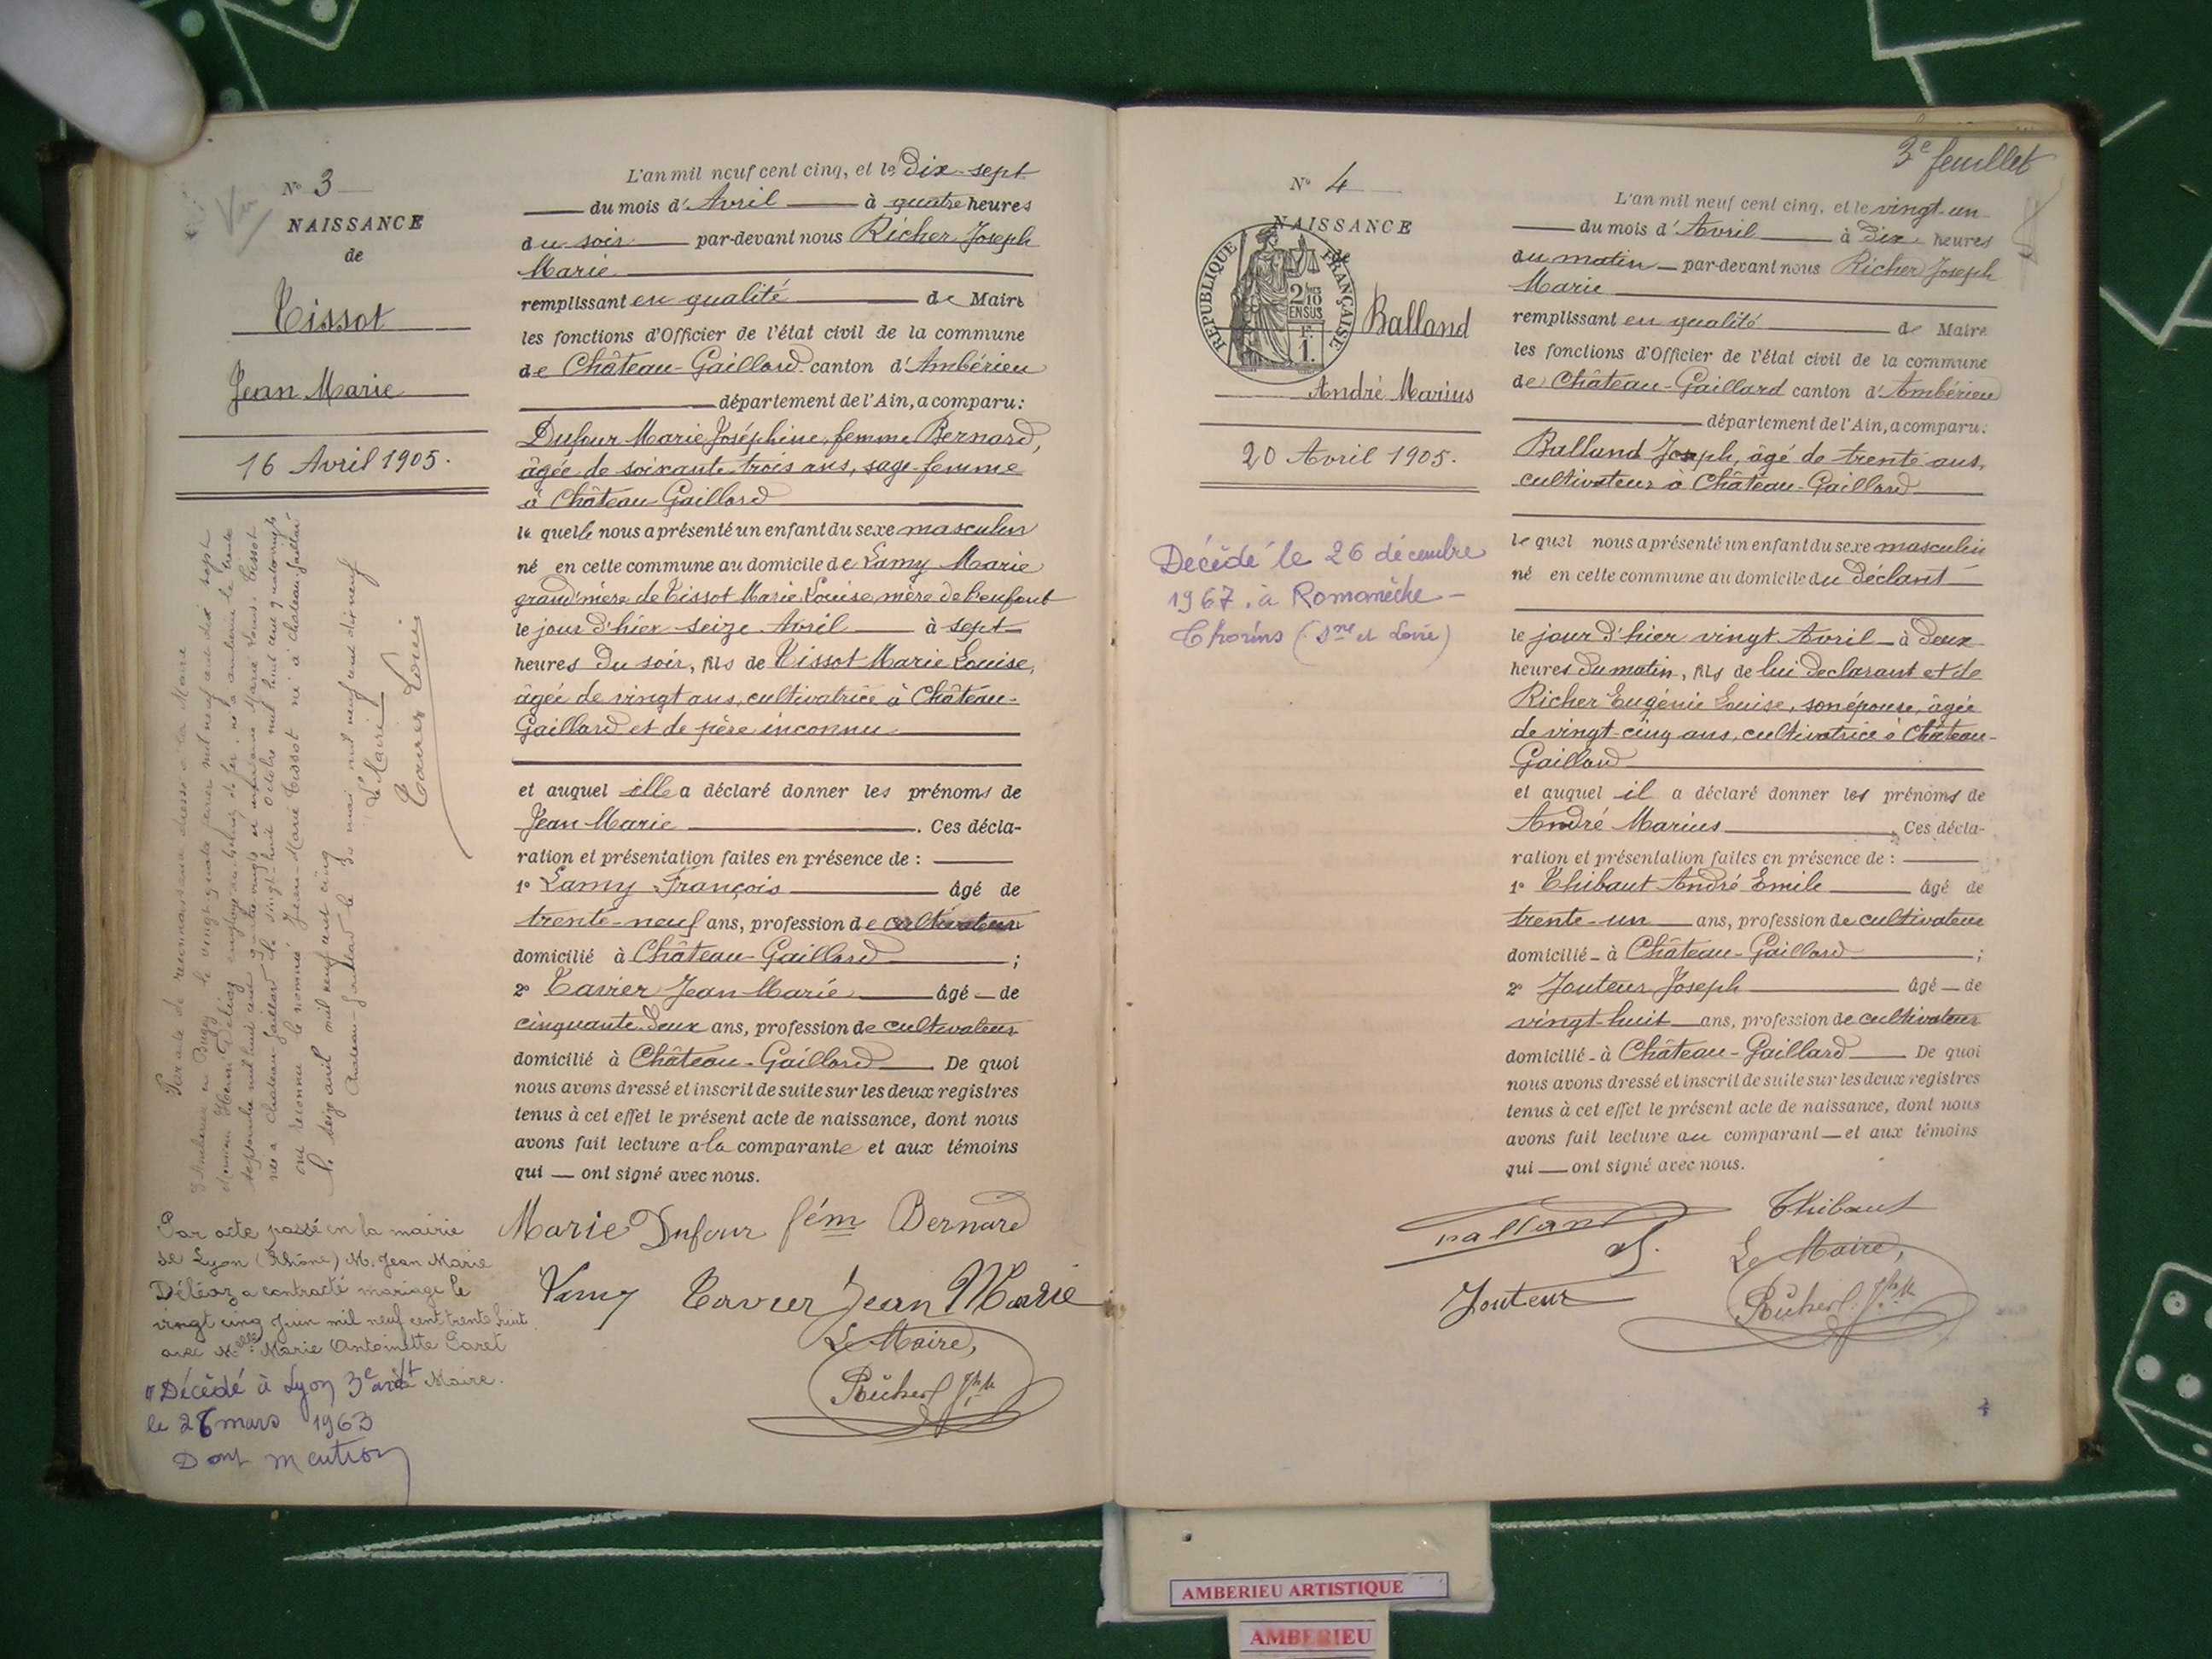 N° 3
NAISSANCE
de
Tissot
Jean Marie
16 Avril 1905.
L'an mil neuf cent cinq, et le Dix-sept
du mois d'Avril à quatre heures
du soir par-devant nous Richer Joseph
Marie
remplissant en qualité de Maire
les fonctions d'Officier de l'état civil de la commune
de Château-Gaillard canton d'Ambérieu
département de l'Ain, a comparu:
Dufour Marie Joséphine, femme Bernard,
âgée de soixante trois ans, sage-femme
à Château-Gaillard
le quelle nous a présenté un enfant du sexe masculin
né en cette commune au domicile de Lamy Marie
grand'mère de Tissot Marie Louise, mère de l'enfant
le jour d'hier seize Avril à sept
heures du soir, fils de Tissot Marie Louise,
âgée de vingt ans, cultivatrice à Château-
Gaillard et de père inconnu
et auquel elle a déclaré donner les prénoms de
Jean Marie. Ces décla-
ration et présentation faites en présence de :
1° Lamy François âgé de
trente-neuf ans, profession de cultivateur
domicilié à Château-Gaillard ;
2° Tavier Jean Marie âgé de
cinquante deux ans, profession de cultivateur
domicilié à Château-Gaillard. De quoi
nous avons dressé et inscrit de suite sur les deux registres
tenus à cet effet le présent acte de naissance, dont nous
avons fait lecture a la comparante et aux témoins
qui ont signé avec nous.
Marie Dufour fém Bernard
Lamy Tavier Jean Marie
Le Maire,
Richer Jph M
Par acte de reconnaissance dressé à la Mairie
d'Ambérieu en Bugey le vingt quatre janvier mil neuf cent dix sept
né à Chateau-Gaillard le vingt-huit Octobre mil huit cent quatre vingt
ont reconnu le nommé Jean-Marie Tissot né à Chateau-Gaillard
le seize avril mil neuf cent cinq
Chateau-Gaillard le 30 mai mil neuf cent dix neuf
Le Maire
Tavier Louis
Par acte passé en la mairie
de Lyon (Rhône) M. Jean Marie
Déléaz a contracté mariage le
vingt cinq Juin mil neuf cent trente huit
avec Melle Marie Antoinette
Maire.
Décédé à Lyon 3e ardt
le 28 mars 1963
Dont mention
3e feuillet
N° 4
NAISSANCE
de
REPUBLIQUE FRANÇAISE
2/10
EN SUS
1 F.
Balland
André Marius
20 Avril 1905.
Décédé le 26 décembre
1967 à Romanèche-
Thorins (Sne et Loire)
L'an mil neuf cent cinq, et le vingt-un
du mois d'Avril à Dix heures
du matin par-devant nous Richer Joseph
Marie
remplissant en qualité de Maire
les fonctions d'Officier de l'état civil de la commune
de Château-Gaillard canton d'Ambérieu
département de l'Ain, a comparu:
Balland Joseph, âgé de trente ans,
cultivateur à Château-Gaillard
le quel nous a présenté un enfant du sexe masculin
né en cette commune au domicile du déclarant
le jour d'hier vingt Avril à deux
heures du matin, fils de lui déclarant et de
Richer Eugénie Louise, son épouse, âgée
de vingt-cinq ans, cultivatrice à Château-
Gaillard
et auquel il a déclaré donner les prénoms de
André Marius. Ces décla-
ration et présentation faites en présence de :
1° Thibaut André Emile âgé de
trente-un ans, profession de cultivateur
domicilié à Château-Gaillard ;
2° Jouteur Joseph âgé de
vingt-huit ans, profession de cultivateur
domicilié à Château-Gaillard De quoi
nous avons dressé et inscrit de suite sur les deux registres
tenus à cet effet le présent acte de naissance, dont nous
avons fait lecture au comparant et aux témoins
qui ont signé avec nous.
Balland Thibaut
Le Maire,
Jouteur
Richer Jph M
AMBERIEU ARTISTIQUE
AMBERIEU